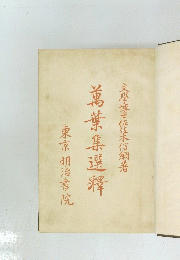 文學博士佐佐木信綱著
萬葉集選釋
東京 明治書院